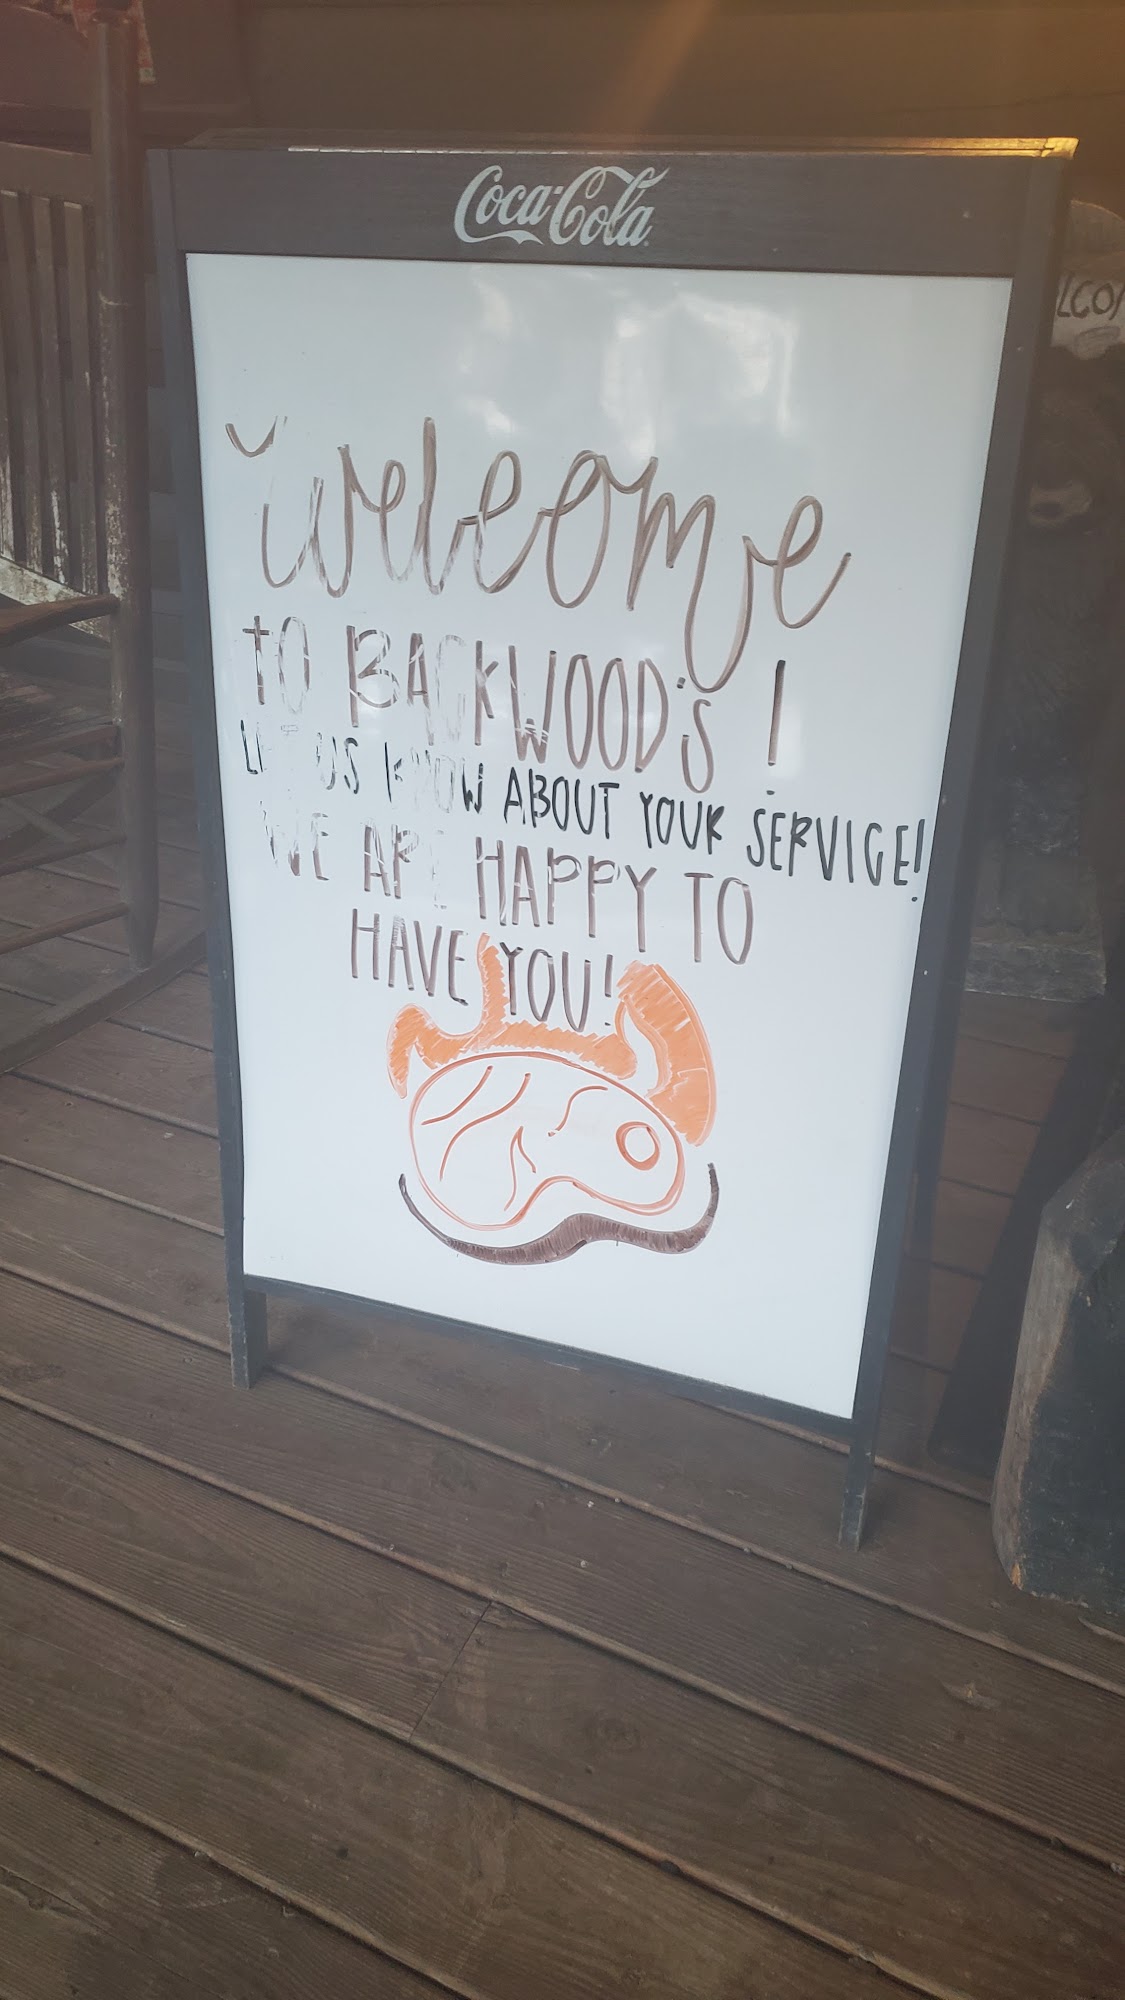 Coca-Cola
Welcome
TO BACKWOOD'S!
LET US KNOW ABOUT YOUR SERVICE!
WE ARE HAPPY TO
HAVE YOU!